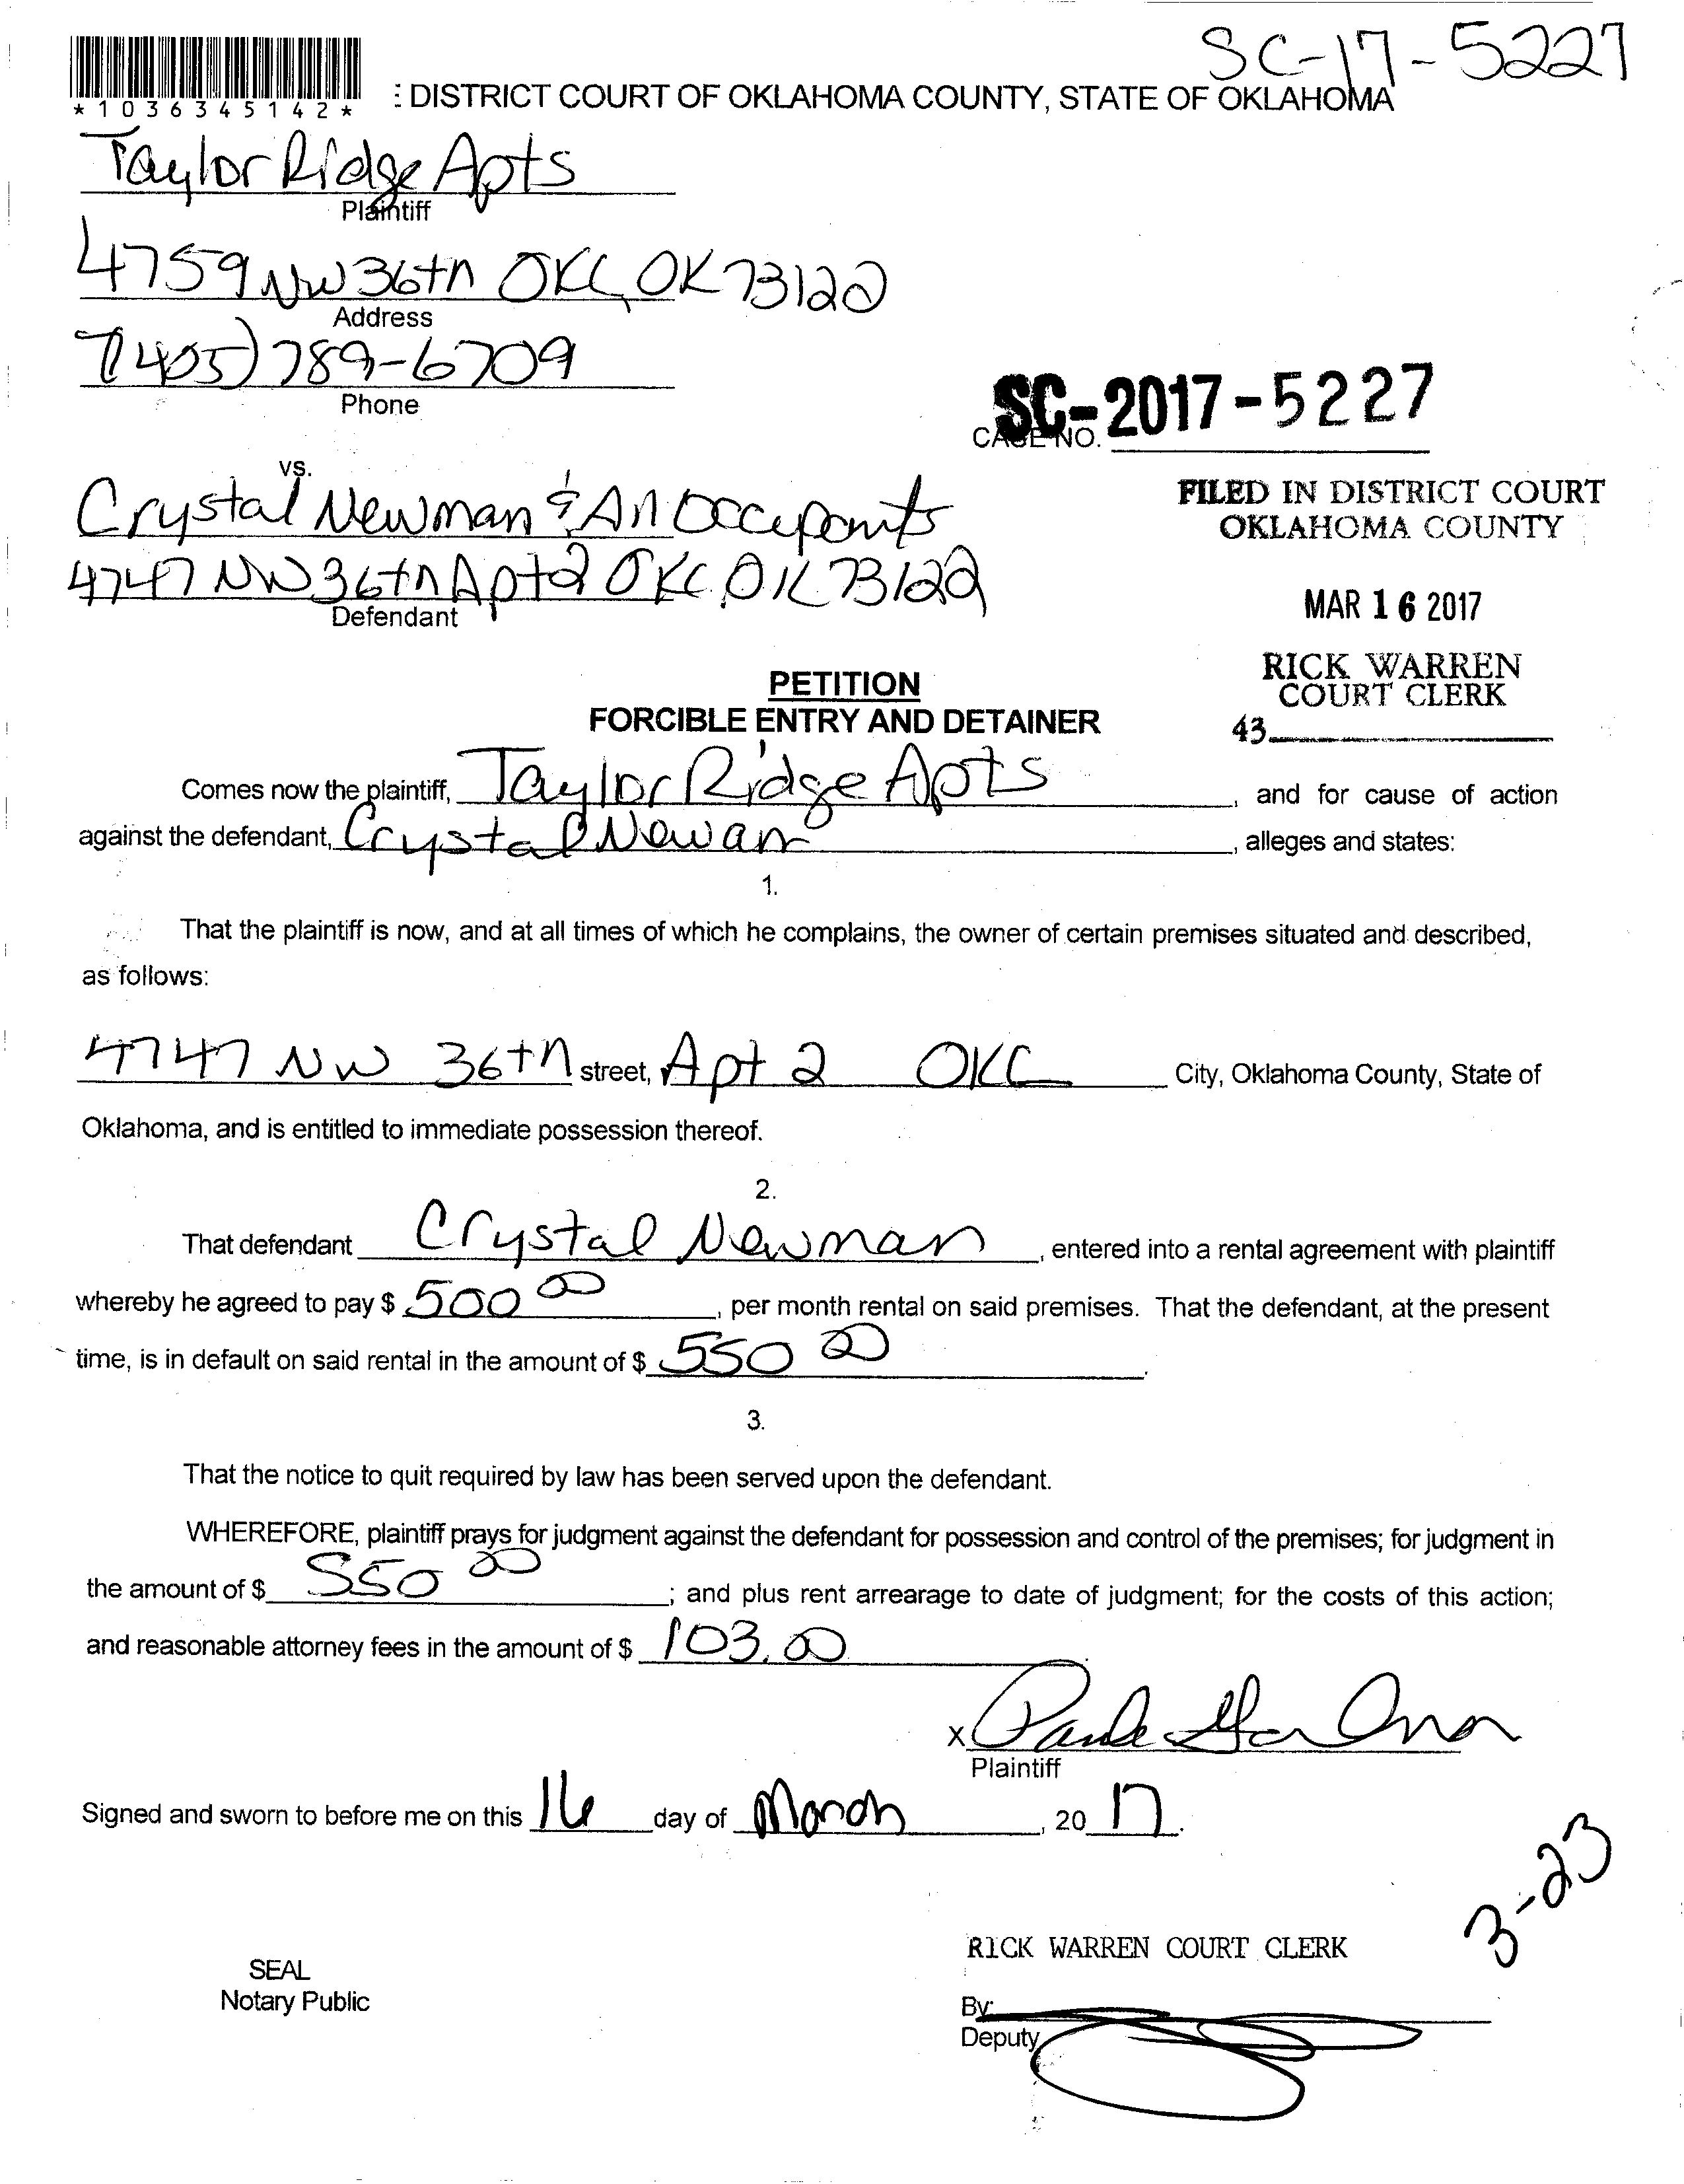 SC-17-5227
*1036345142*
: DISTRICT COURT OF OKLAHOMA COUNTY, STATE OF OKLAHOMA
Taylor Ridge Apts
Plaintiff
4759 NW 36th OKC, OK 73122
Address
(405) 789-6709
Phone
SC-2017-5227
CASE NO.
vs.
Crystal Newman & All Occupants
4747 NW 36th Apt 2 OKC OK 73122
Defendant
FILED IN DISTRICT COURT
OKLAHOMA COUNTY
MAR 16 2017
RICK WARREN
COURT CLERK
43
PETITION
FORCIBLE ENTRY AND DETAINER
Comes now the plaintiff, Taylor Ridge Apts, and for cause of action
against the defendant, Crystal Newan, alleges and states:
1.
That the plaintiff is now, and at all times of which he complains, the owner of certain premises situated and described,
as follows:
4747 NW 36th street, Apt 2 OKC City, Oklahoma County, State of
Oklahoma, and is entitled to immediate possession thereof.
2.
That defendant Crystal Newman, entered into a rental agreement with plaintiff
whereby he agreed to pay $ 500 00, per month rental on said premises. That the defendant, at the present
time, is in default on said rental in the amount of $ 550 00.
3.
That the notice to quit required by law has been served upon the defendant.
WHEREFORE, plaintiff prays for judgment against the defendant for possession and control of the premises; for judgment in
the amount of $ 550 00; and plus rent arrearage to date of judgment; for the costs of this action;
and reasonable attorney fees in the amount of $ 103.00.
X
Plaintiff
Signed and sworn to before me on this 16 day of March, 20 17.
3-23
RICK WARREN COURT CLERK
SEAL
Notary Public
By:
Deputy